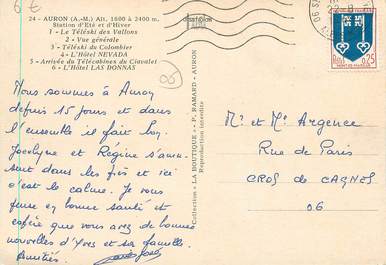 6€
24 - AURON (A.-M.) Alt. 1600 à 2400 m.
Station d'Eté et d'Hiver
1 - Le Téléski des Vallons
2 - Vue générale
3 - Téléski du Colombier
4 - L'Hôtel NEVADA
5 - Arrivée du Télécabines du Ciavalet
6 - L'Hôtel LAS DONNAS
06
Nous sommes à Auron
depuis 15 jours et dans
l'ensemble il fait bon.
Jocelyne et Régine s'amu-
sent dans les prés et ici
c'est le calme. Je vous
pense en bonne santé et
espère que vous avez de bonnes
nouvelles d'Yves et sa famille.
Amitiés.
Collection « LA BOUTIQUE » - F. RAMARD - AURON
Reproduction interdite
0,25
Mr et Mme Argence
Rue de Paris
CROS de CAGNES
06